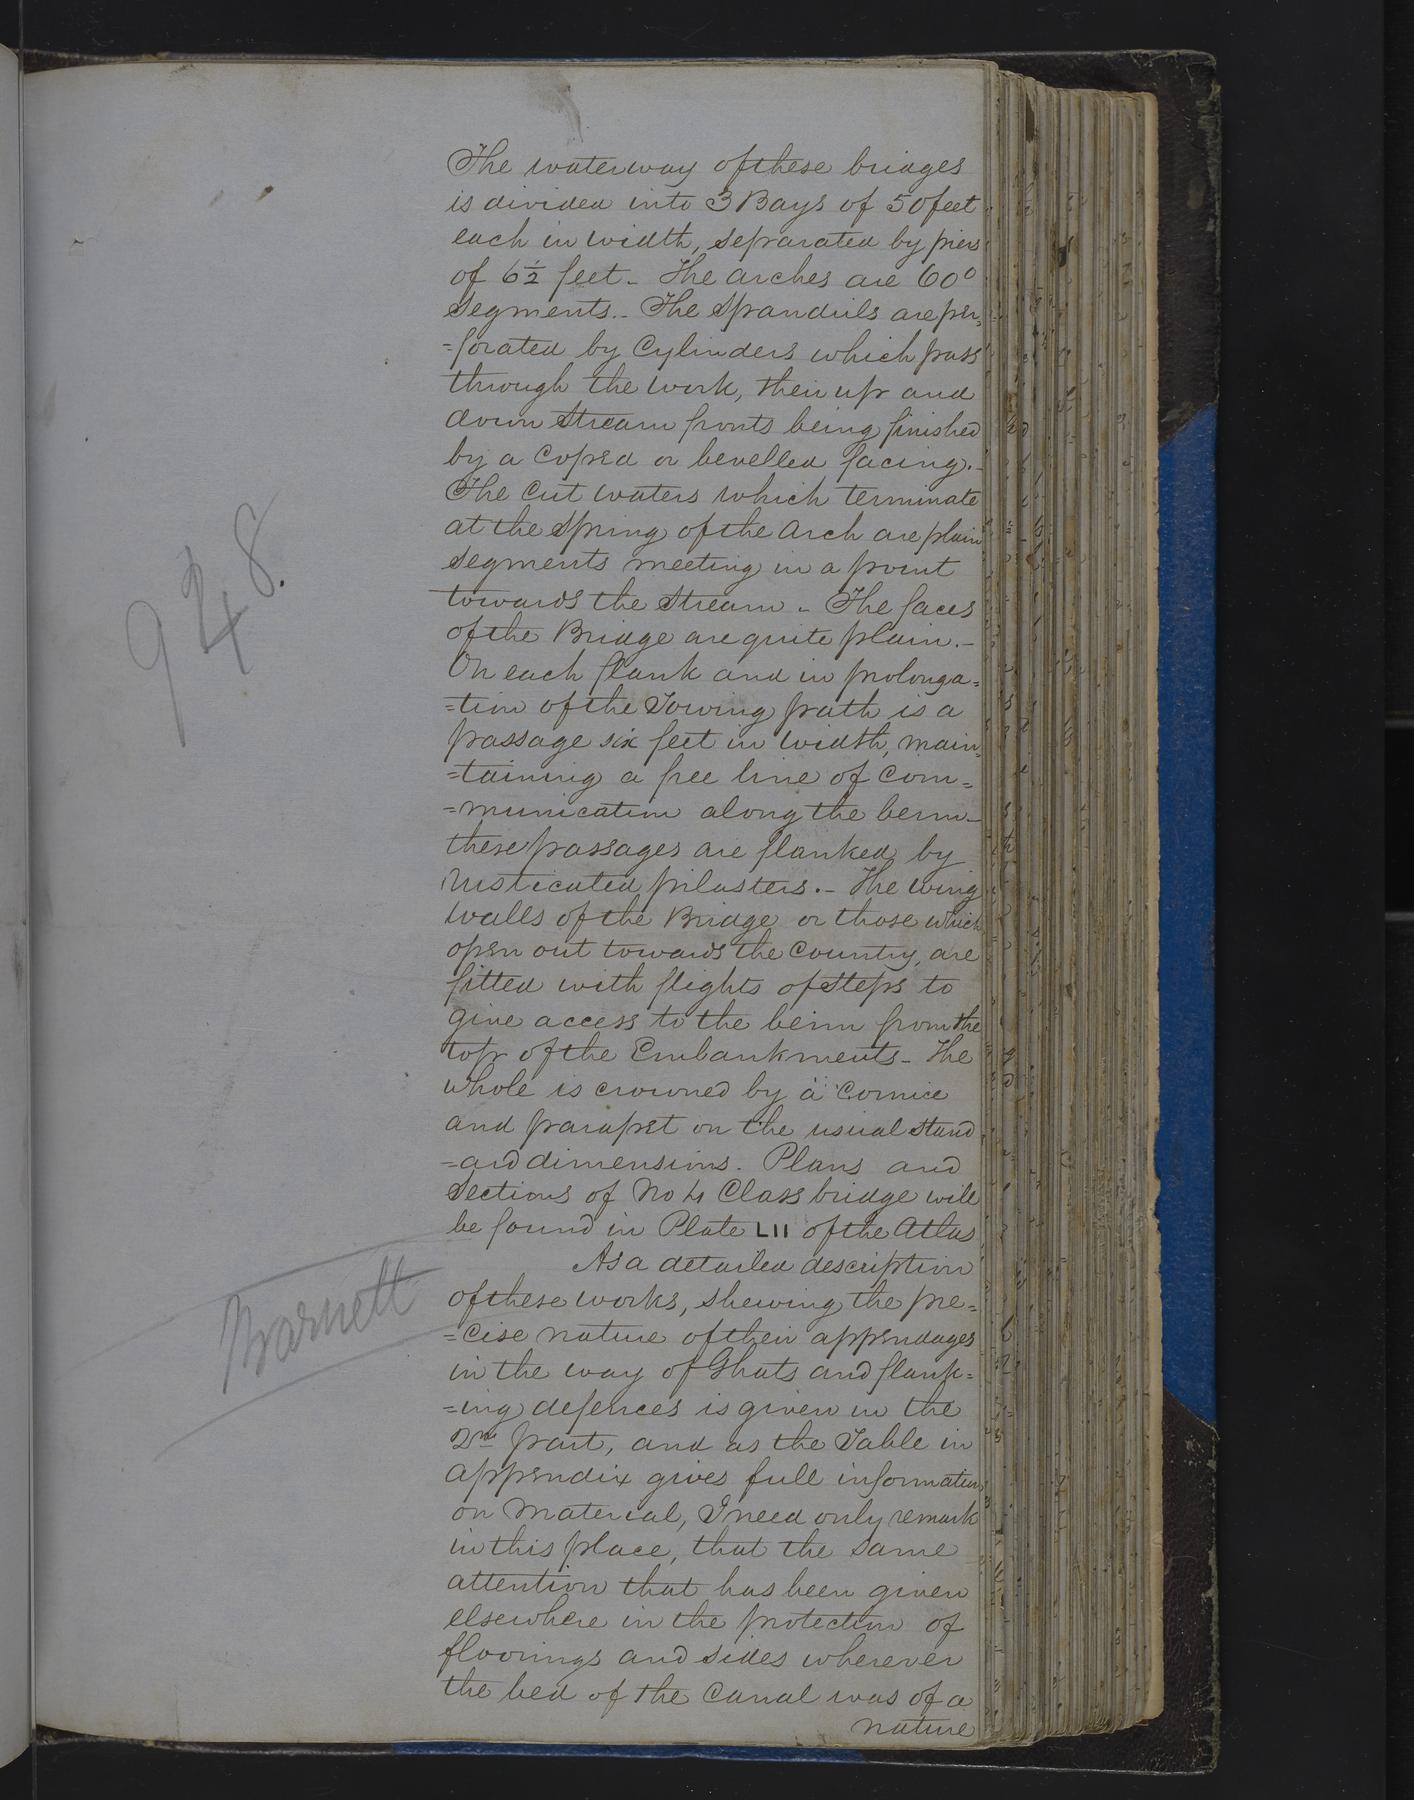 The waterway of these bridges
is divided into 3 Bays of 50 feet
each in width, separated by piers
of 6½ feet - The arches are 60°
Segments.- The Spandrils are per=
=forated by Cylinders which pass
through the work, their up and
down Stream fronts being finished
by a Coped or bevelled facing.-
The Cut waters which terminate
at the Spring of the Arch are plain
segments meeting in a point
towards the Stream - The faces
of the Bridge are quite plain.-
On each flank and in prolonga=
=tion of the Towing path is a
passage six feet in width, main=
=taining a free line of Com=
=munication along the berm-
these passages are flanked by
rusticated pilasters.- The wing
walls of the Bridge or those which
open out towards the Country, are
fitted with flights of Steps to
give access to the berm from the
top of the Embankments - The
whole is crowned by a Cornice
and parapet on the usual stand
=ard dimensions. Plans and
Sections of No 4 Class bridge will
be found in Plate LII of the Atlas
As a detailed description
of these works, shewing the pre=
=cise nature of their appendages
in the way of Ghats and flank=
=ing defences is given in the
2nd part, and as the Table in
appendix gives full information
on Material, I need only remark
in this place, that the same
attention that has been given
elsewhere in the protection of
floorings and sides wherever
the bed of the Canal was of a
nature
948.
Barnett